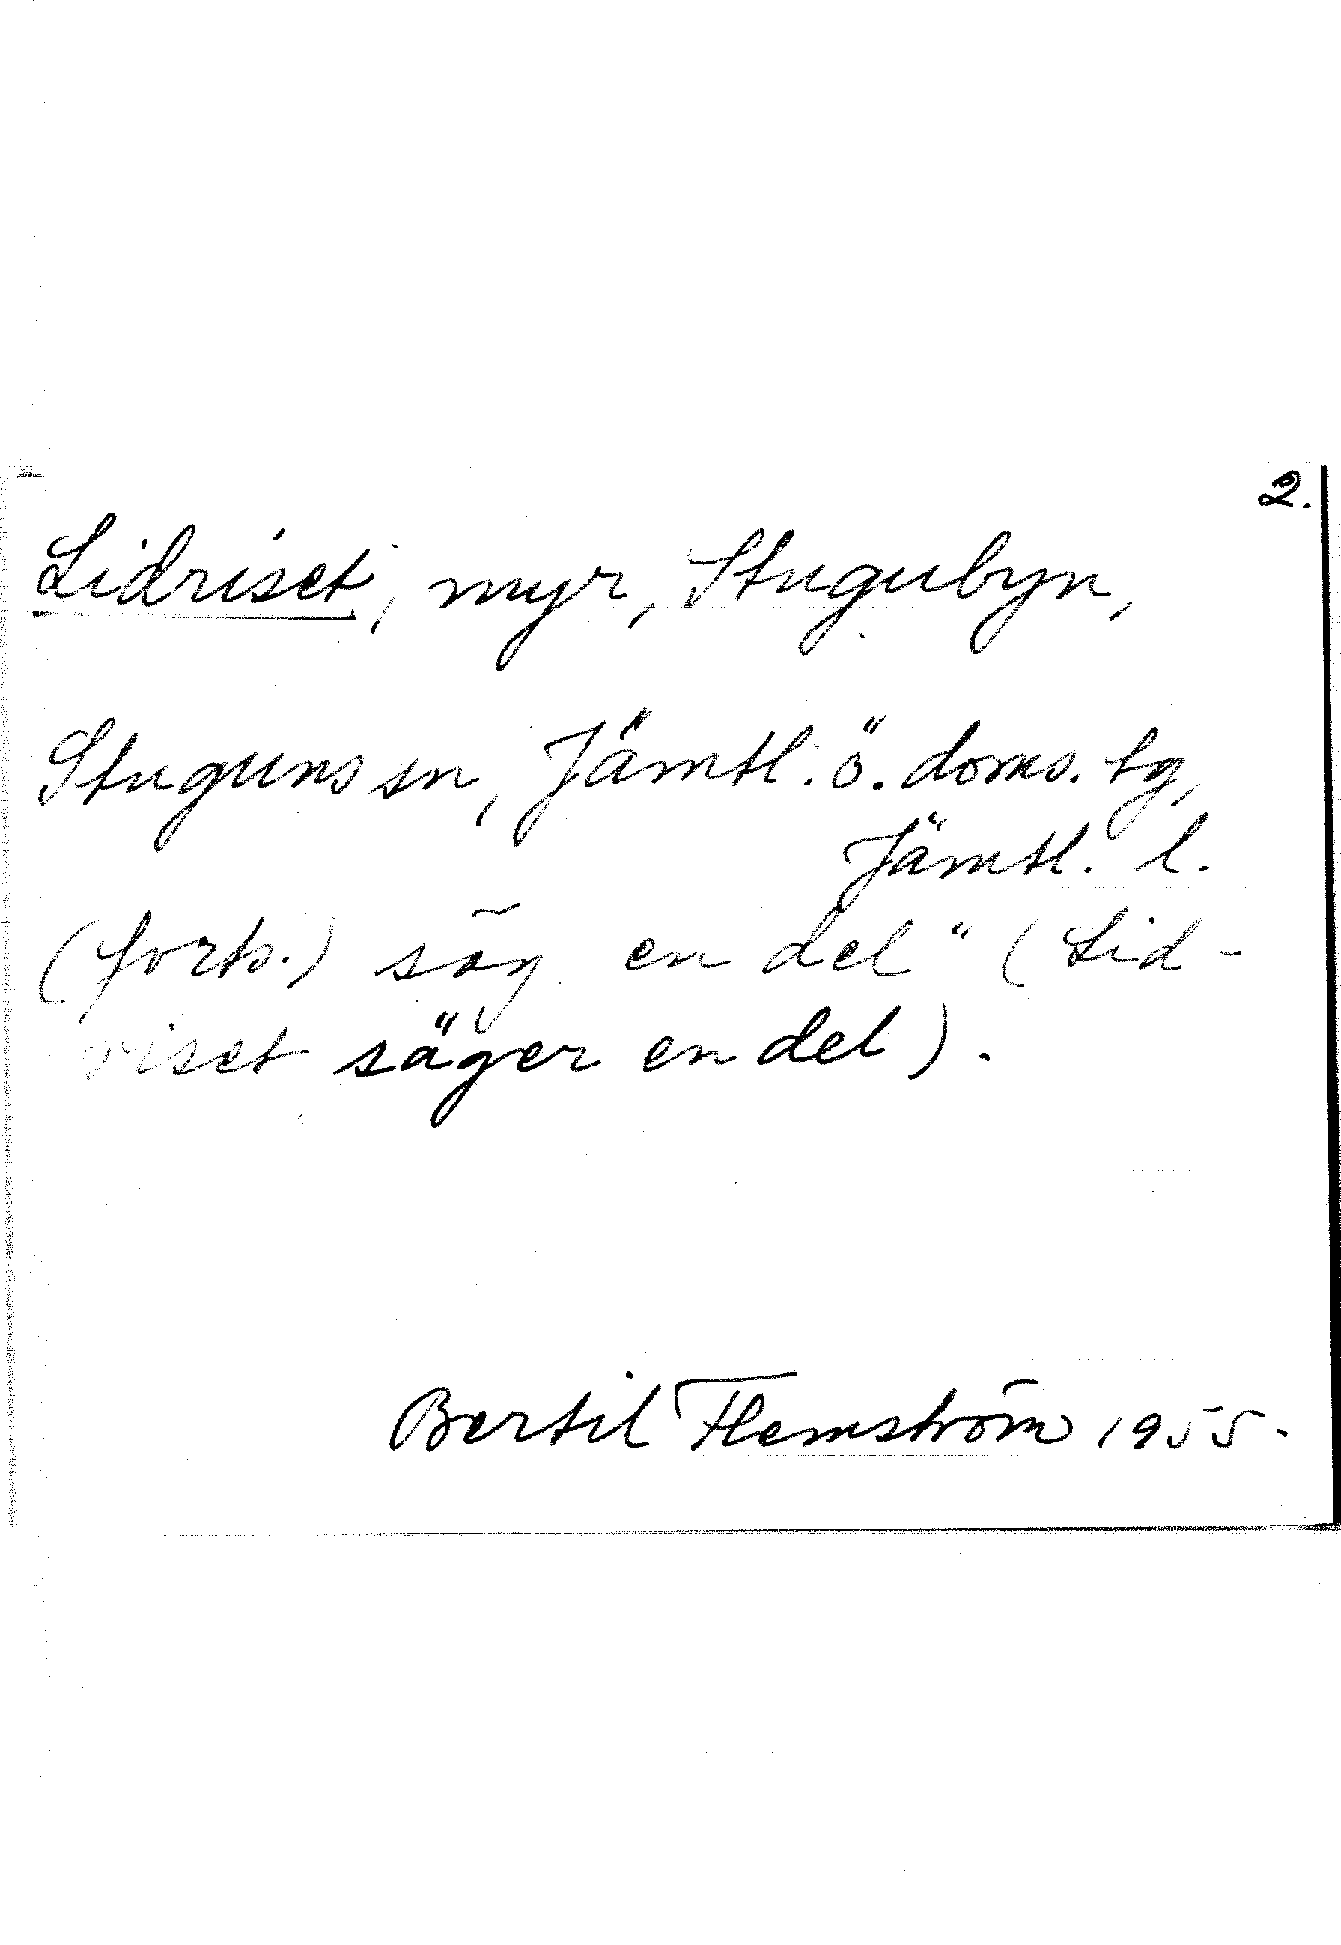 2.
Lidriset, myr, Stugubyn,
Stuguns sn, Jämtl. ö. doms. tg,
Jämtl. l.
(forts.) sög en del" (Lid-
riset säger en del).
Bertil Flemström 1955.